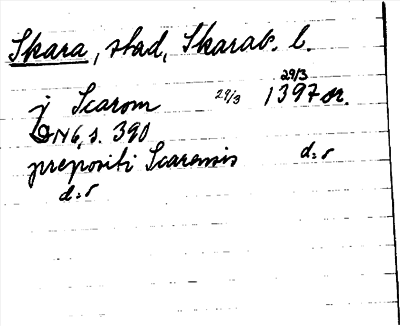 Skara, stad, Skarab. l.
29/3
j Scarom 29/3 1397 or.
DN 6, s. 390
prepositi Scarensis d:o
d:o